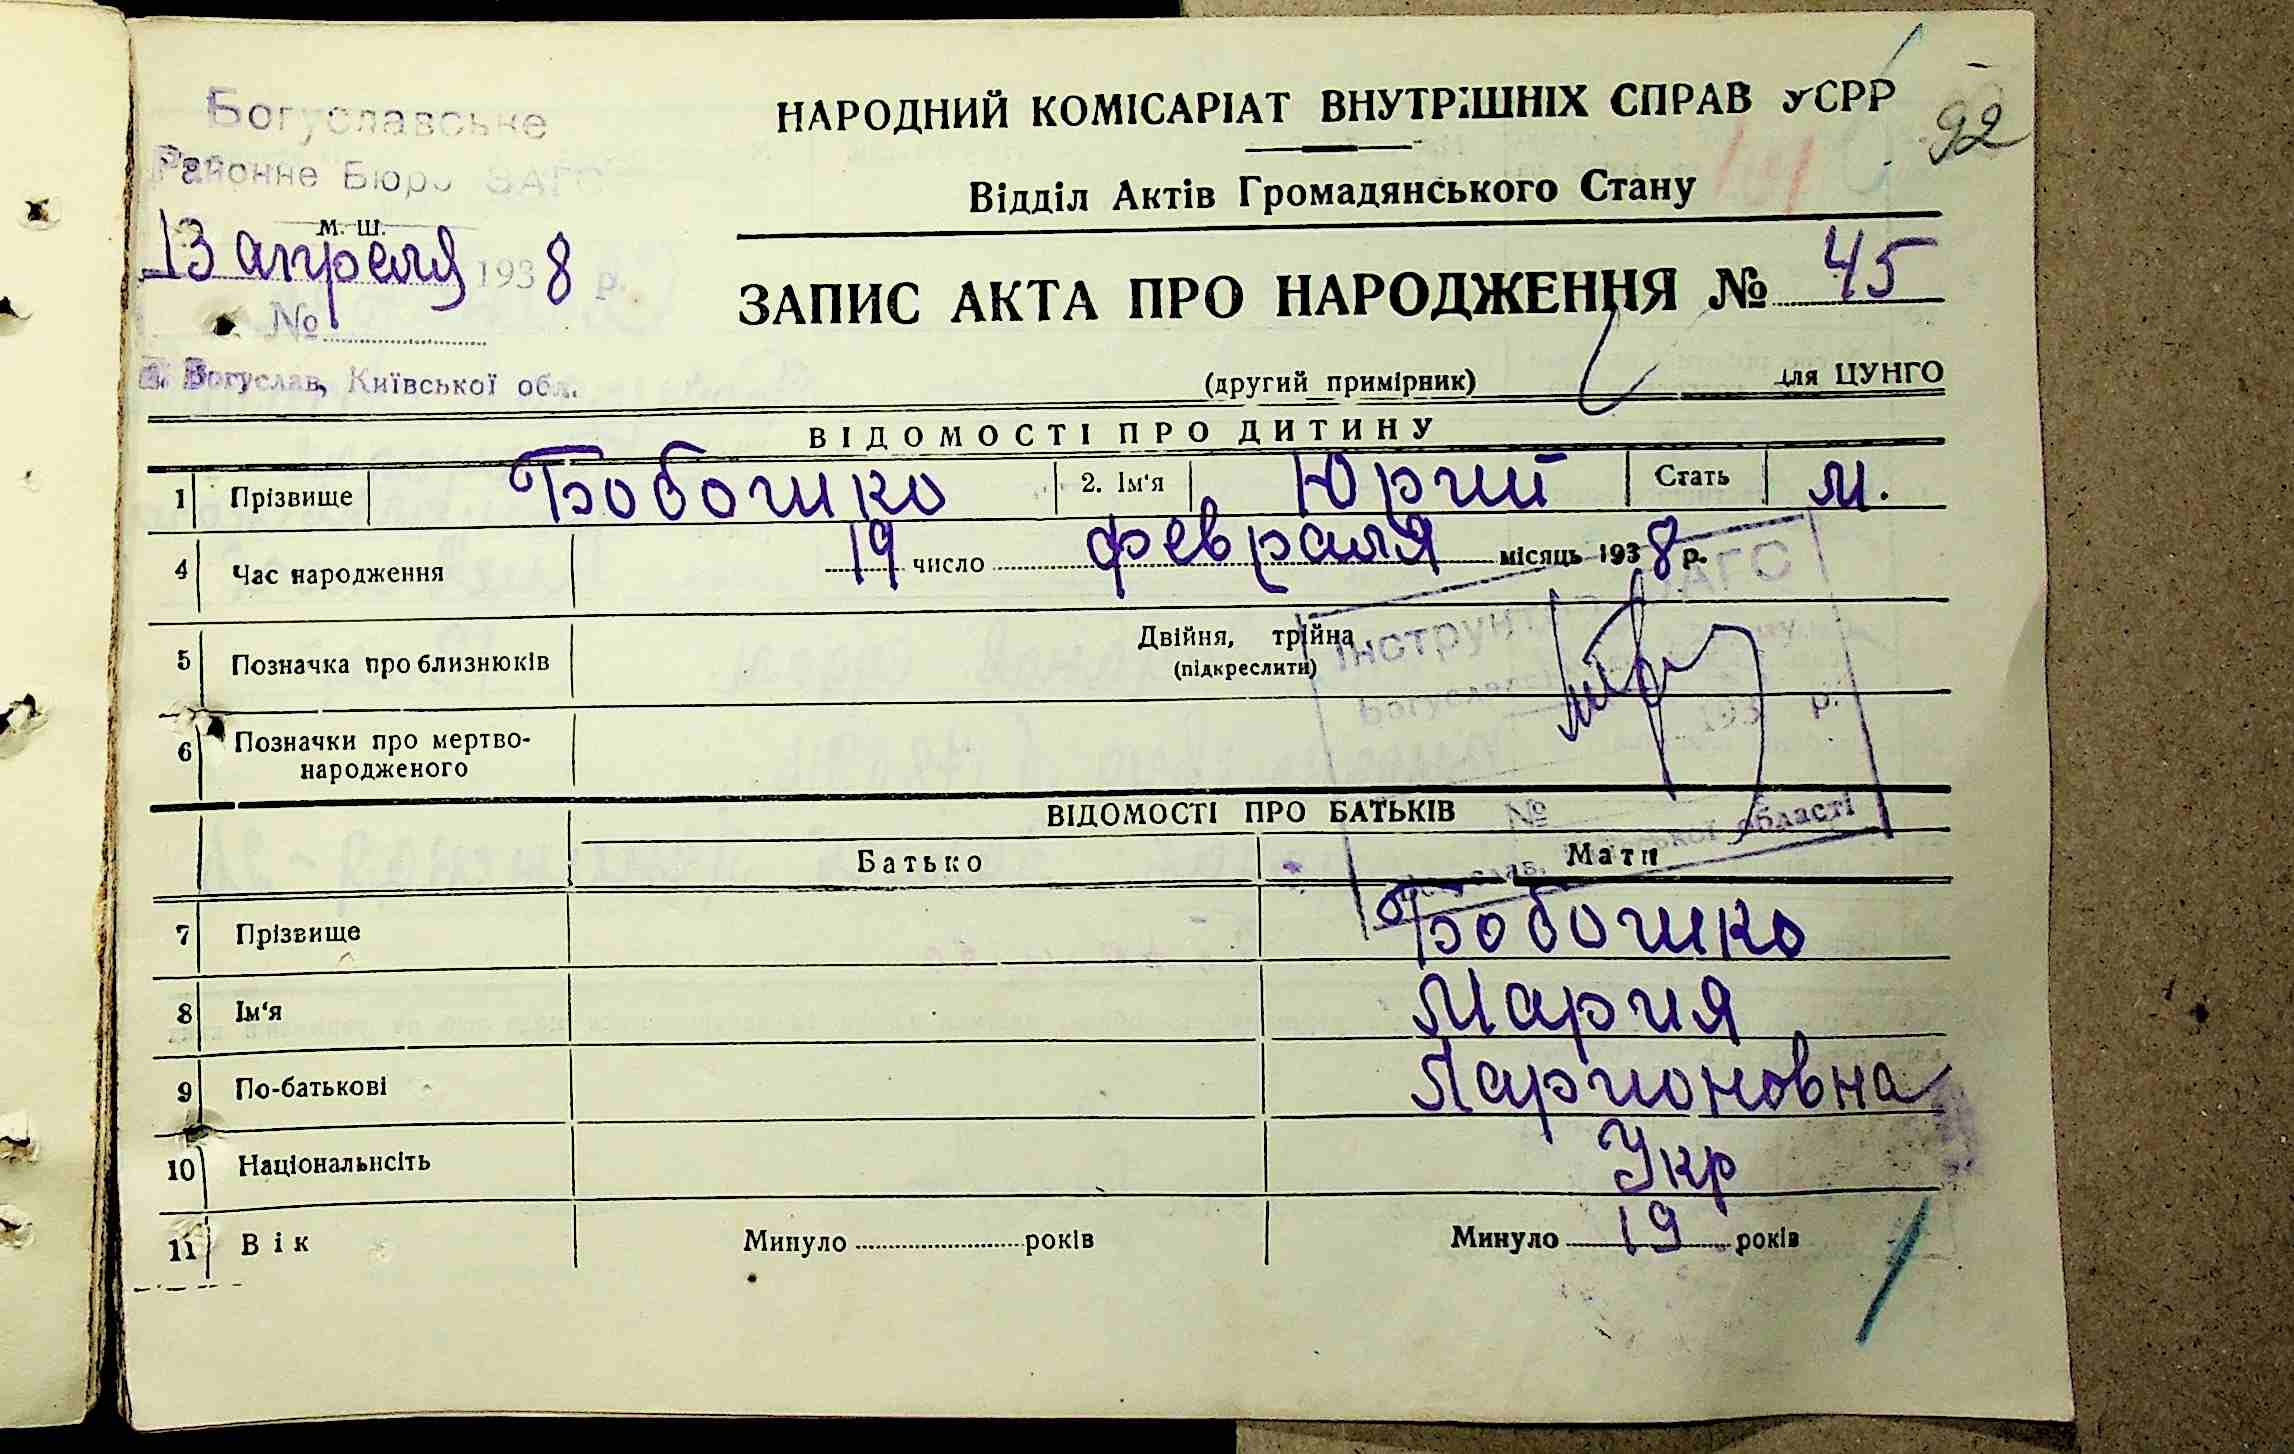 Богуславське
Районне Бюро ЗАГС
НАРОДНИЙ КОМІСАРІАТ ВНУТРІШНІХ СПРАВ УСРР
92
Відділ Актів Громадянського Стану
м. ш.
13 апреля 1938 р.
№
ЗАПИС АКТА ПРО НАРОДЖЕННЯ № 45
Богуслав, Київської обл.
(другий примірник) для ЦУНГО
ВІДОМОСТІ ПРО ДИТИНУ
1 Прізвище Бобошко 2. Ім'я Юрий Стать м.
4 Час народження 19 число февраля місяць 1938 р.
5 Позначка про близнюків Двійня, трійна
(підкреслити)
Інструктор ЗАГС
193 р.
№
області
6 Позначки про мертво-
народженого
ВІДОМОСТІ ПРО БАТЬКІВ
Батько Мати
7 Прізвище Бобошко
8 Ім'я Мария
9 По-батькові Ларионовна
10 Національнсіть Укр
11 Вік Минуло років Минуло 19 років